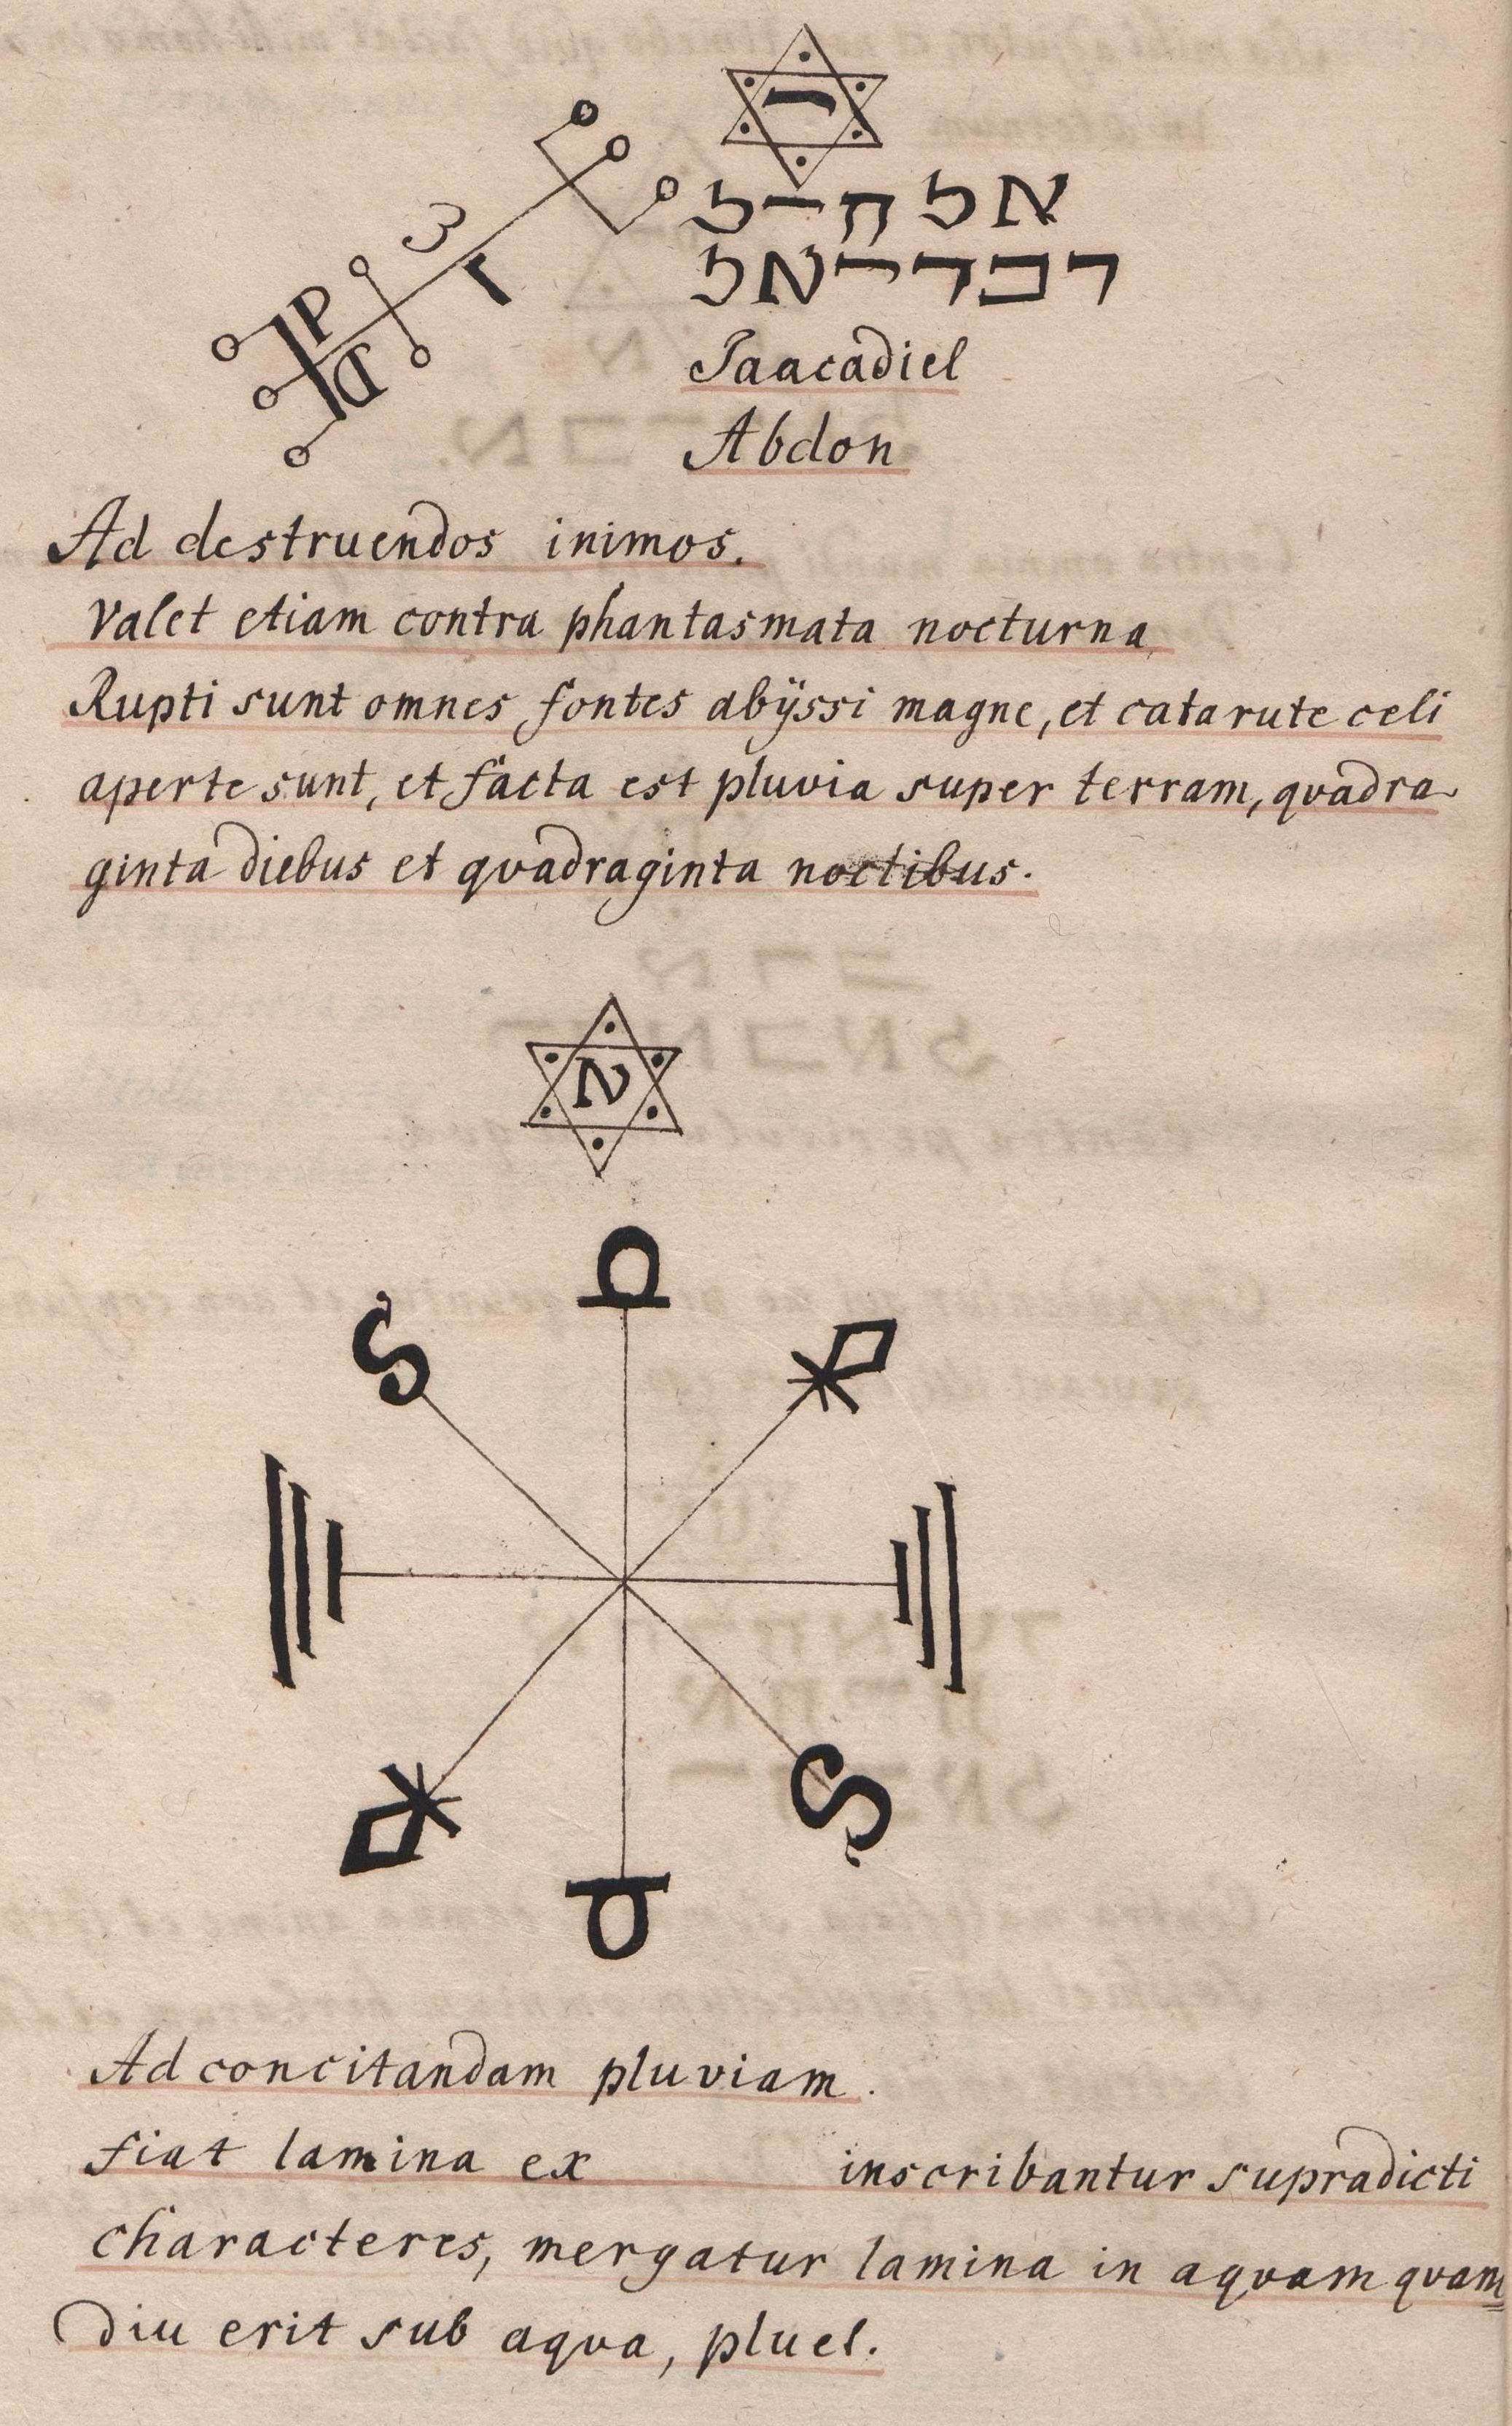 י
אל חיל
רכדיאל
Jaacadiel
Abdon
Ad destruendos inimos.
Valet etiam contra phantasmata nocturna
Rupti sunt omnes fontes abÿssi magne, et catarute celi
aperte sunt, et facta est pluvia super terram, quadra
ginta diebus et quadraginta noctibus.
א
Ad concitandam pluviam.
fiat lamina ex inscribantur supradicti
characteres, mergatur lamina in aquam quam=
diu erit sub aqua, pluet.